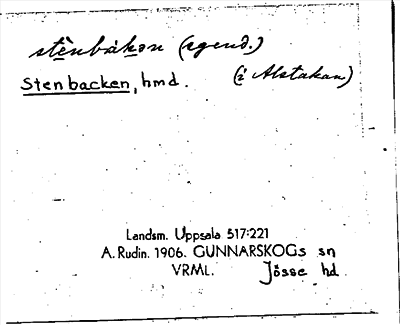 stènbàkən (egend.)
Stenbacken, hmd.
(i Alstakan)
Landsm. Uppsala 517:221
A. Rudin. 1906. GUNNARSKOGs sn
VRML. Jösse hd